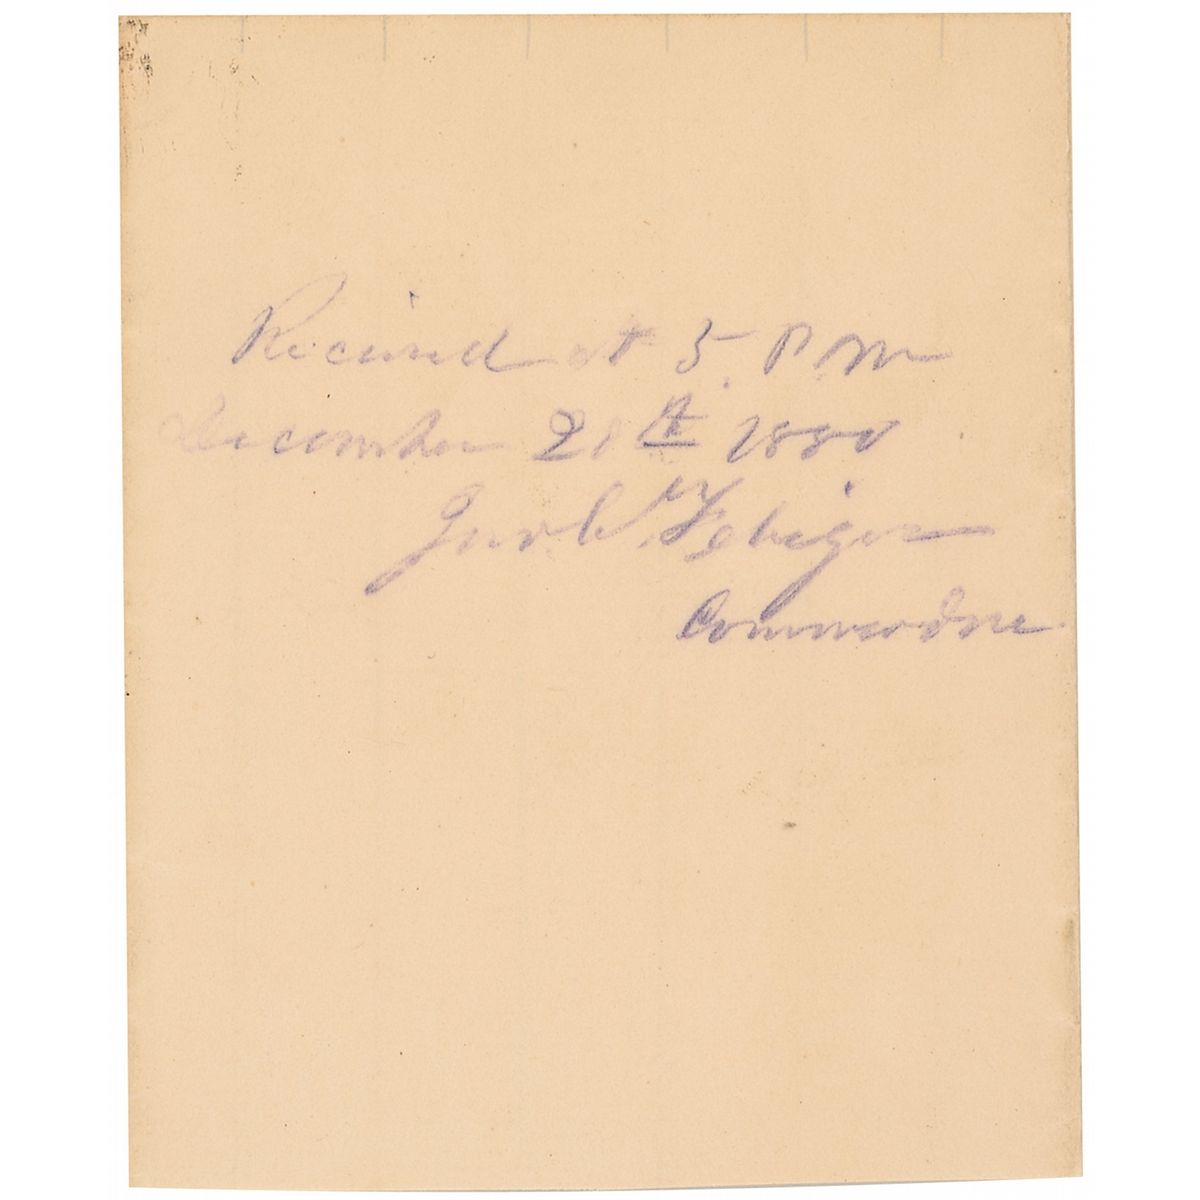 Received at 5. P.M
December 20th 1880
Jno. C. Febiger
Commodore